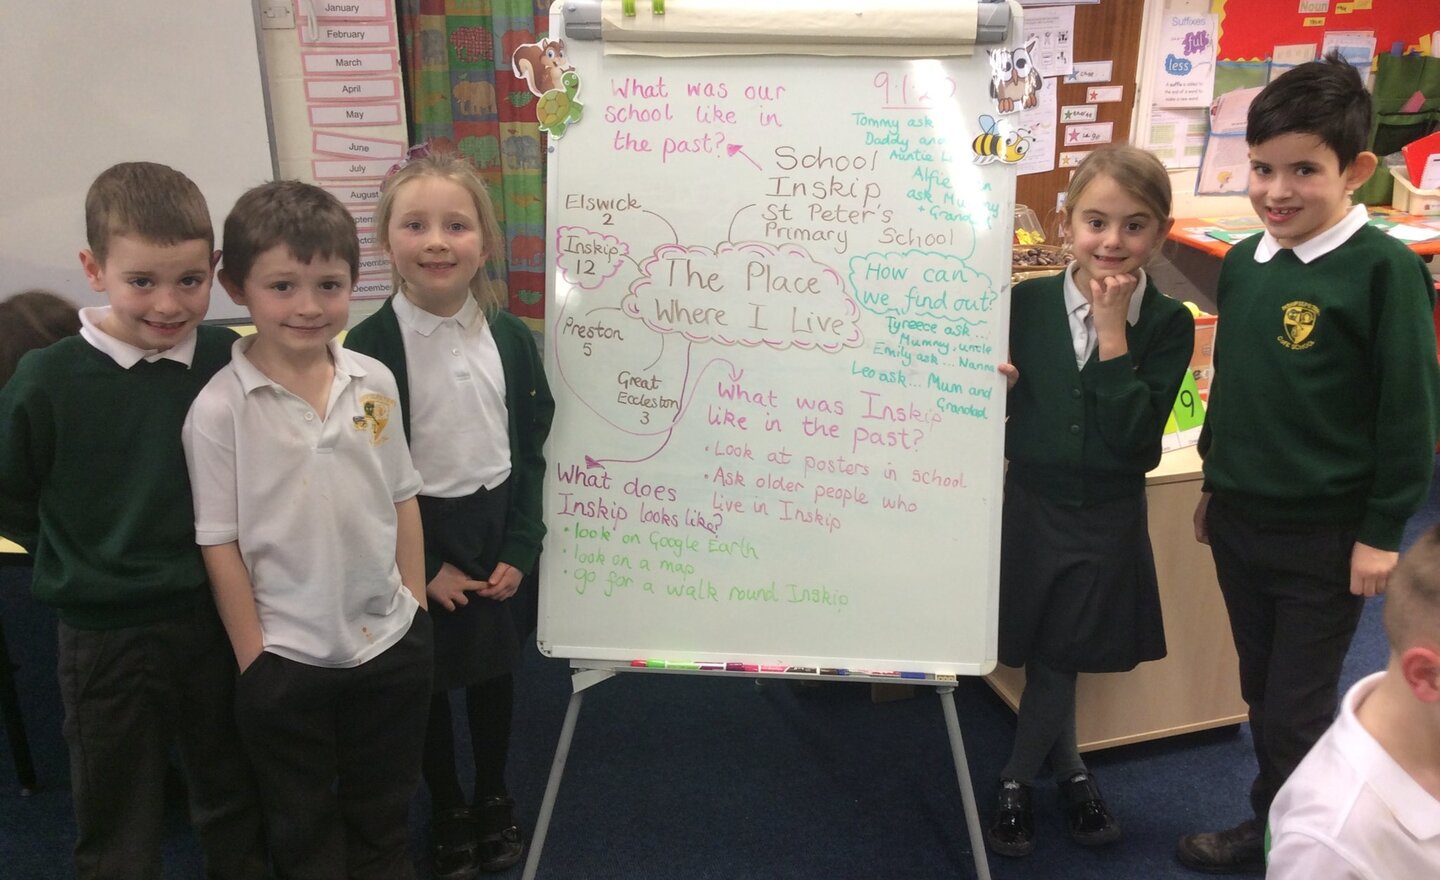 January
February
March
April
May
June
July
August
December
What was our
school like in
the past?
9.1.2
Tommy ask
Daddy and
Auntie
Alfie
ask Mummy
+ Grandad
School
Inskip
St Peter's
Primary School
Elswick
2
Inskip
12
Preston
5
Great
Eccleston
3
The Place
Where I Live
How can
we find out?
Tyreece ask...
Mummy, uncle
Emily ask... Nanna
Leo ask... Mum and
Grandad
What was Inskip
like in the past?
· Look at posters in school
· Ask older people who
live in Inskip
What does
Inskip looks like?
· look on Google Earth
· look on a map
· go for a walk round Inskip
Suffixes
ful
less
Noun
9